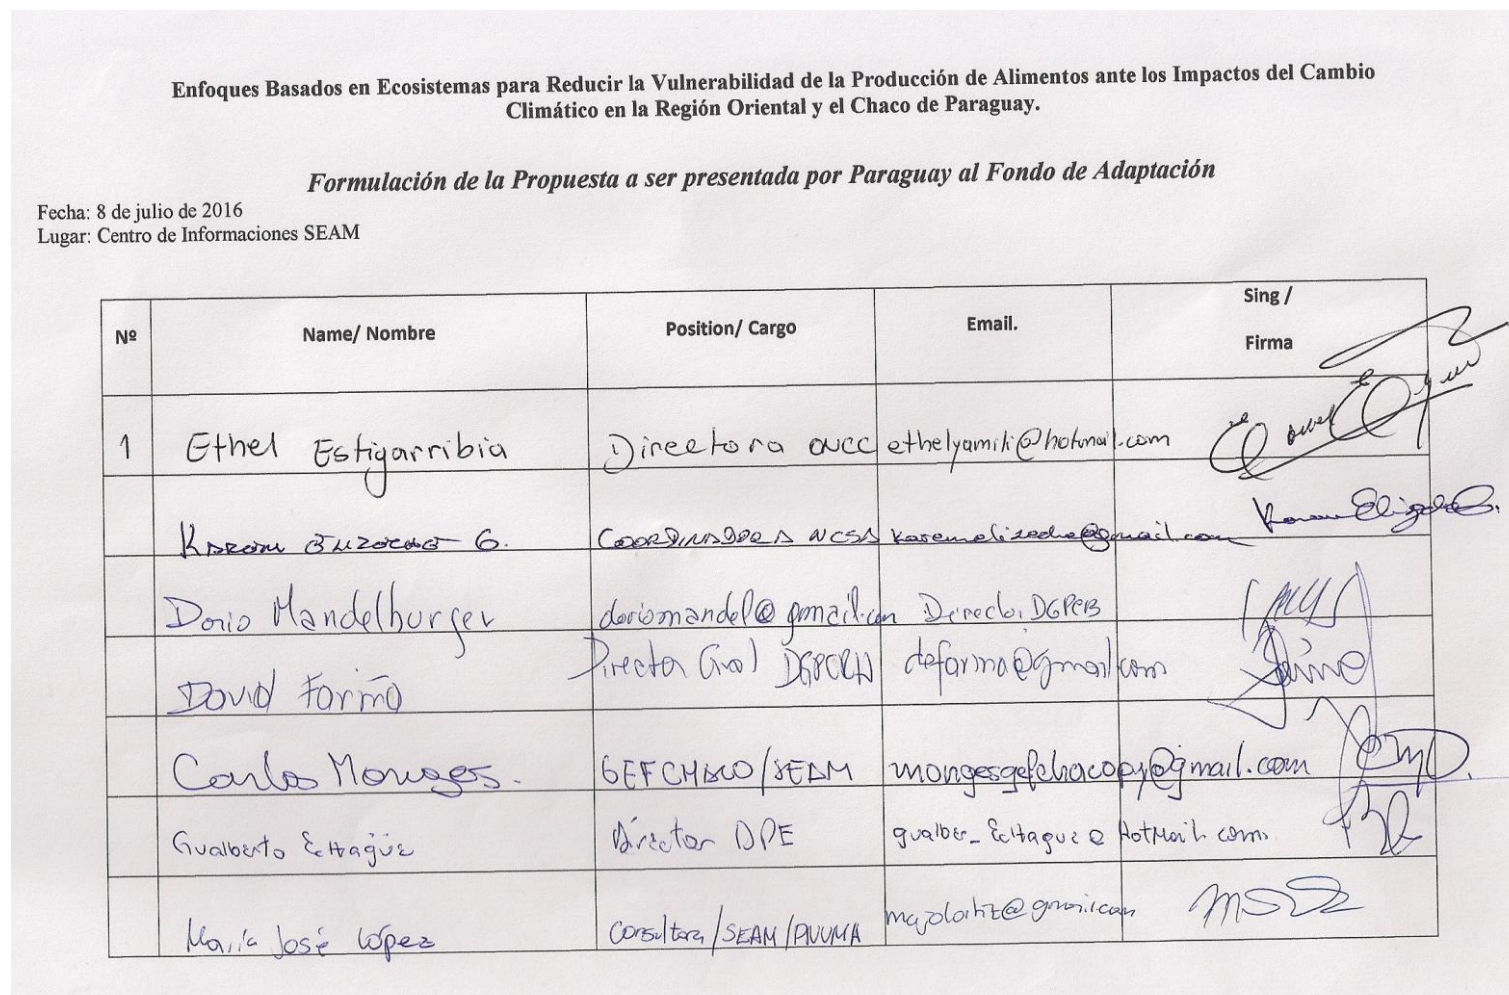 Enfoques Basados en Ecosistemas para Reducir la Vulnerabilidad de la Producción de Alimentos ante los Impactos del Cambio
Climático en la Región Oriental y el Chaco de Paraguay.
Formulación de la Propuesta a ser presentada por Paraguay al Fondo de Adaptación
Fecha: 8 de julio de 2016
Lugar: Centro de Informaciones SEAM
Nº Name/ Nombre Position/ Cargo Email. Sing /
Firma
1 Ethel Estigarribia Directora ONCC ethelyamili@hotmail.com
Karem Elizeche G. COORDINADORA NCSA karemelizeche@gmail.com
Dario Mandelburger dariomandel@gmail.com Director DGPCB
David Fariña Director Gral DGPCRH defarina@gmail.com
Carlos Monges. GEFCHACO/SEAM mongesgefchacopy@gmail.com
Gualberto Echagüe Director DPE gualber_Echague@HotMail.com
María José López Consultora/SEAM/PNUMA